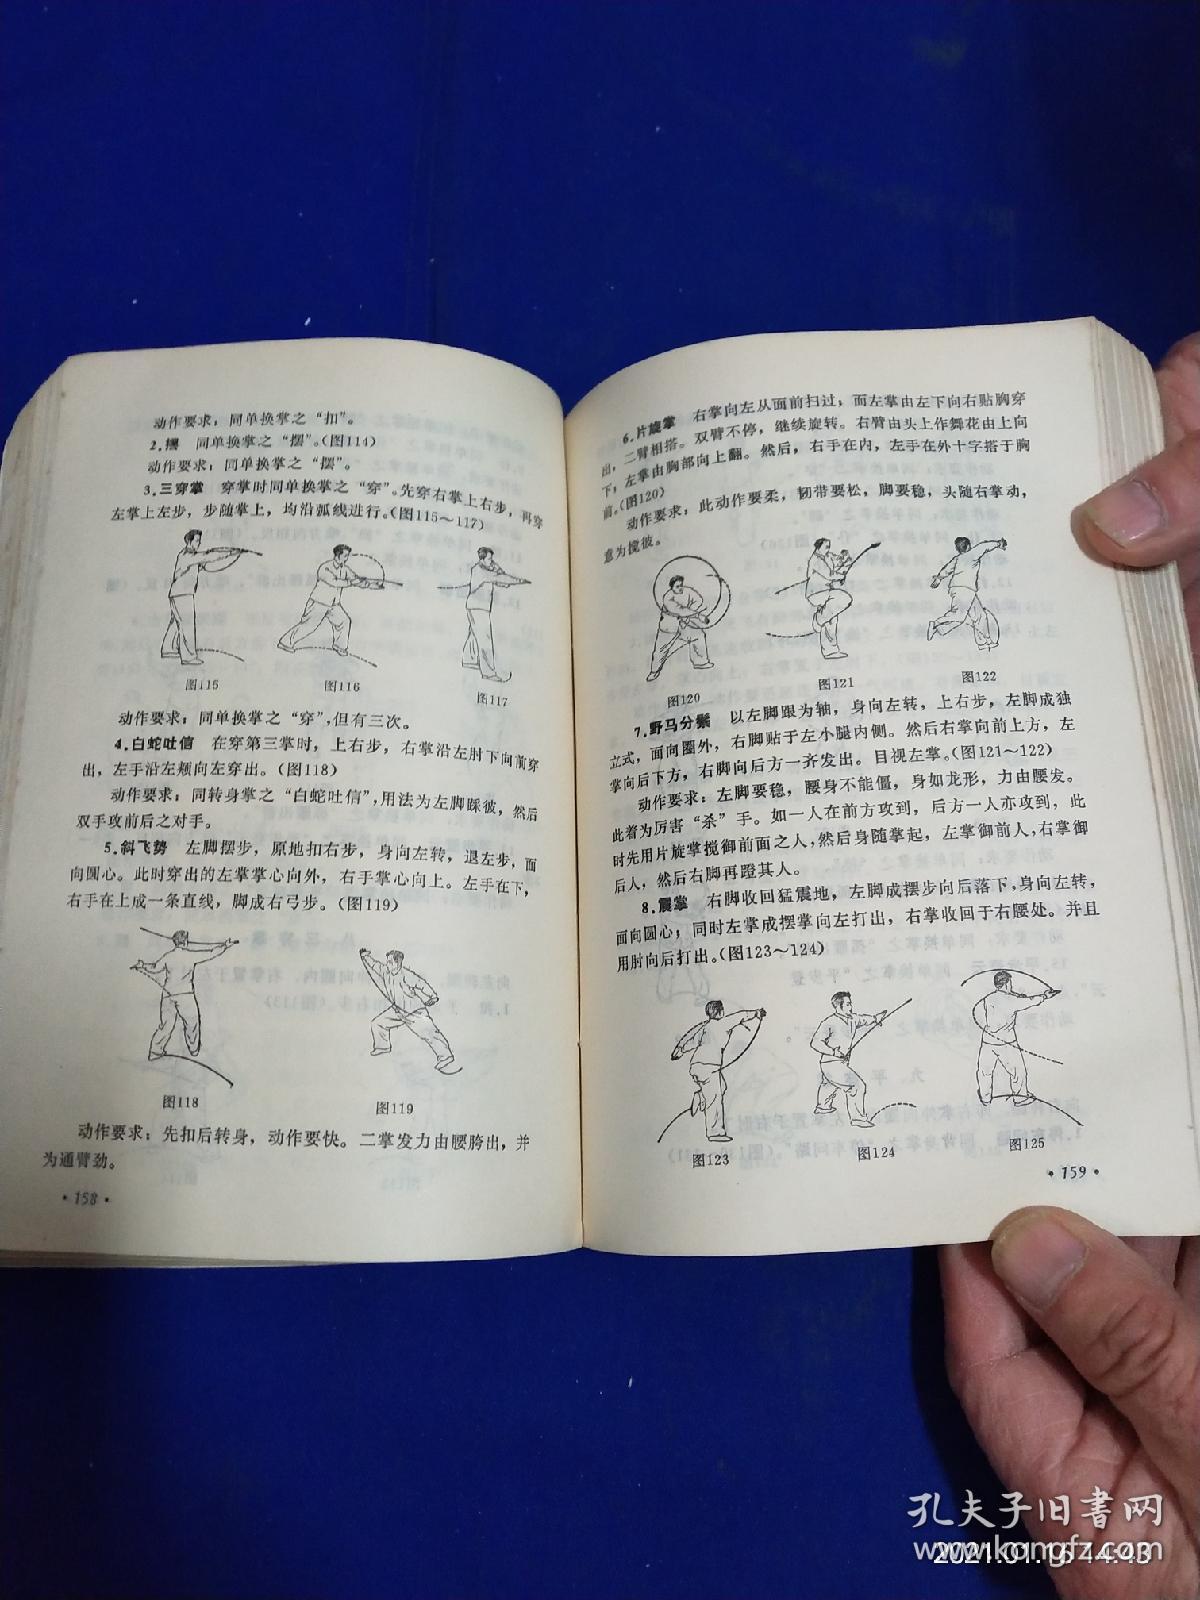 动作要求：同单换掌之“扣”。
2.摆 同单换掌之“摆”。(图114)
动作要求：同单换掌之“摆”。
3.三穿掌 穿掌时同单换掌之“穿”。先穿右掌上右步，再穿
左掌上左步，步随掌上，均沿弧线进行。(图115～117)
图115
图116
图117
动作要求：同单换掌之“穿”，但有三次。
4.白蛇吐信 在穿第三掌时，上右步，右掌沿左肘下向前穿
出，左手沿左颊向左穿出。(图118)
动作要求：同转身掌之“白蛇吐信”，用法为左脚踩彼，然后
双手攻前后之对手。
5.斜飞势 左脚摆步，原地扣右步，身向左转，退左步，面
向圆心。此时穿出的左掌掌心向外，右手掌心向上。左手在下，
右手在上成一条直线，脚成右弓步。(图119)
图118
图119
动作要求：先扣后转身，动作要快。二掌发力由腰胯出，并
为通臂劲。
·158·
6.片旋掌 右掌向左从面前扫过；而左掌由左下向右贴胸穿
出，二臂相搭。双臂不停，继续旋转。右臂由头上作舞花由上向
下；左掌由胸部向上翻。然后，右手在内，左手在外十字搭于胸
前。(图120)
动作要求：此动作要柔，韧带要松，脚要稳，头随右掌动，
意为搅彼。
图120
图121
图122
7.野马分鬃 以左脚跟为轴，身向左转，上右步，左脚成独
立式，面向圈外，右脚贴于左小腿内侧。然后右掌向前上方，左
掌向后下方，右脚向后方一齐发出。目视左掌。(图121～122)
动作要求：左脚要稳，腰身不能僵，身如龙形，力由腰发。
此着为厉害“杀”手。如一人在前方攻到，后方一人亦攻到，此
时先用片旋掌搅御前面之人，然后身随掌起，左掌御前人，右掌御
后人，然后右脚再蹬其人。
8.震掌 右脚收回猛震地，左脚成摆步向后落下，身向左转，
面向圆心；同时左掌成摆掌向左打出，右掌收回于右腰处。并且
用肘向后打出。(图123～124)
图123
图124
图125
·159·
孔夫子旧书网
www.kongfz.com
2021.01.16 14:43